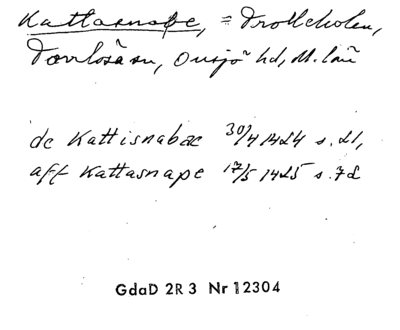 Kattasnape, = Drottcholm,
Torrlösa sn, Onsjö hd, M. län
de Kattisnabæ 30/4 1424 s. 21,
aff Kattasnape 17/5 1425 s. 72
GdaD 2R3 Nr 12304